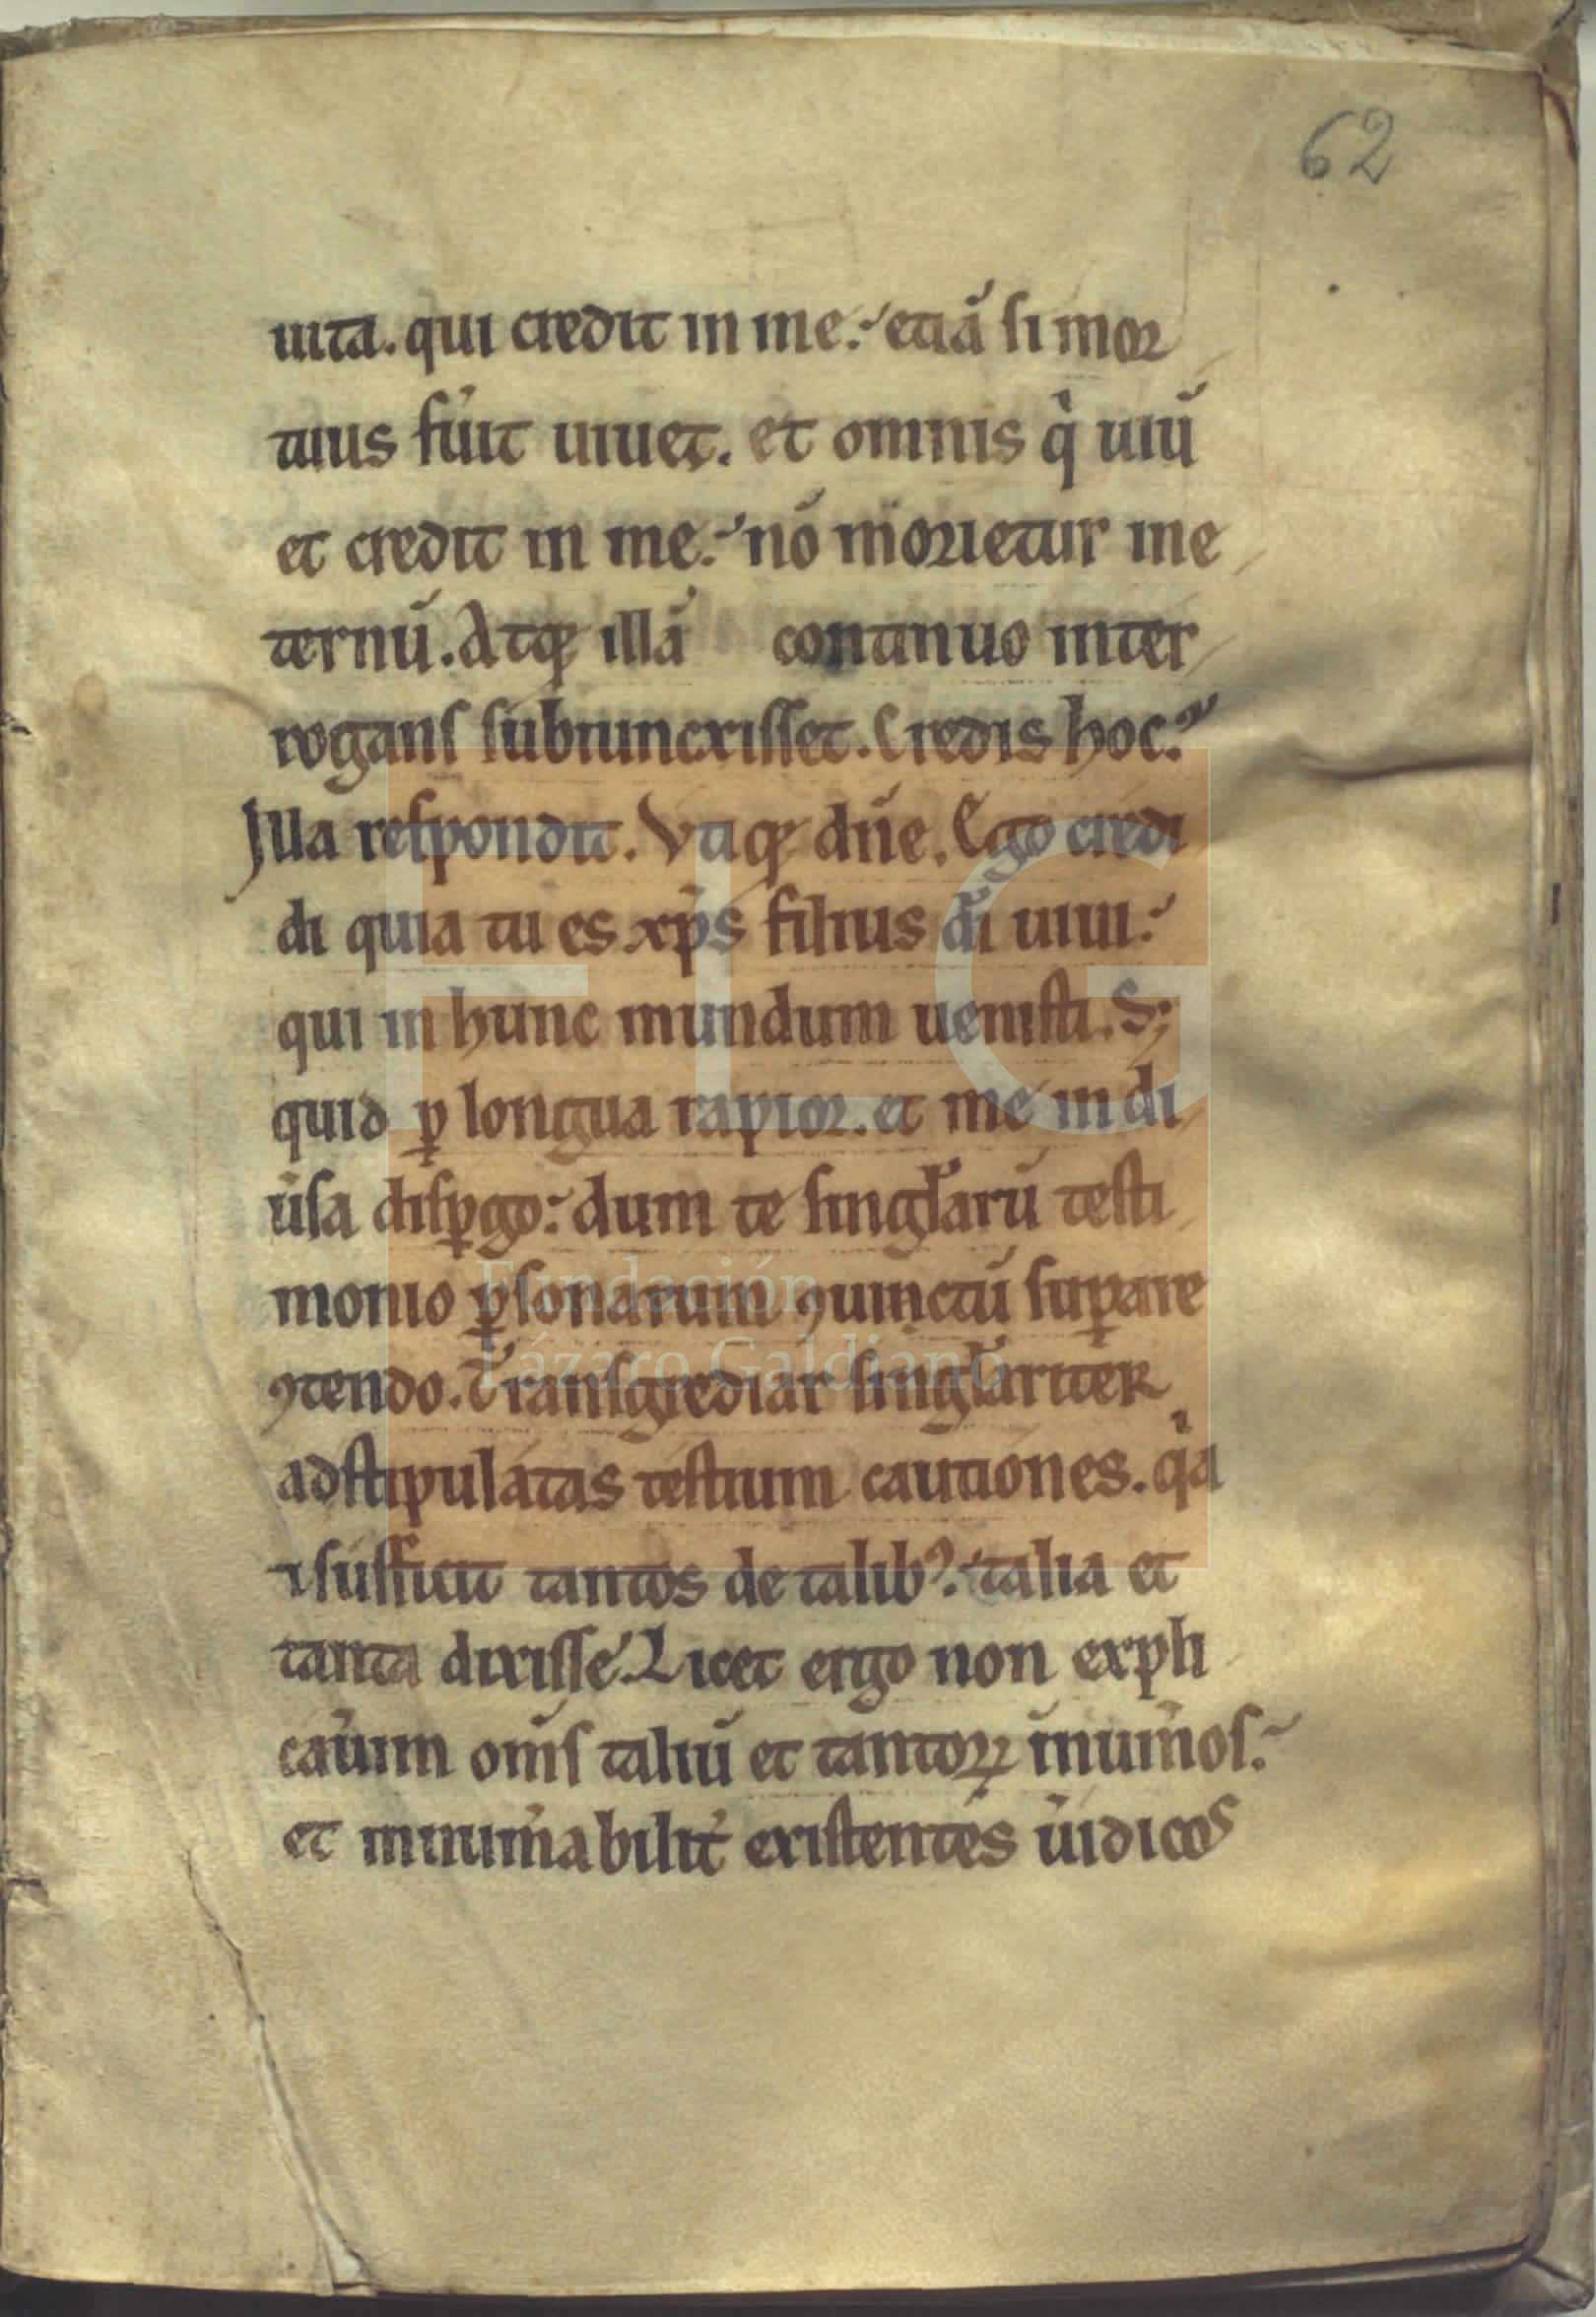 62
uita. qui credit in me. etiā si mor
tuus fuit uiuet. et omnis q̇ uiū
et credit in me. nō morietur in e
ternū. Atq; illā continuo inter
rogans subiuncxisset. Credis hoc?
Illa respondit. Vtiq; dn̄e. Ego credi
di quia tu es xp̄s filius dī uiui.
qui in hunc mundum uenisti. S;
quid ꝑ longua rapior. et me in di
ūsa disꝑgo. dum te singłarū testi
monio ꝑsonarum ꝯuinctū suꝑare
ꝯtendo. Transgrediar singłariter
adstipulatas testium cautiones. q̇a
⁊ suffiūt tantos de talibꝰ. talia et
tanta dixisse. Licet ergo non expli
cauīm om̄s taliū et tantoꝝ inum̄os.
et innum̄abilit̄ existentes ūidicos
Fundación
Lázaro Galdiano
FLG